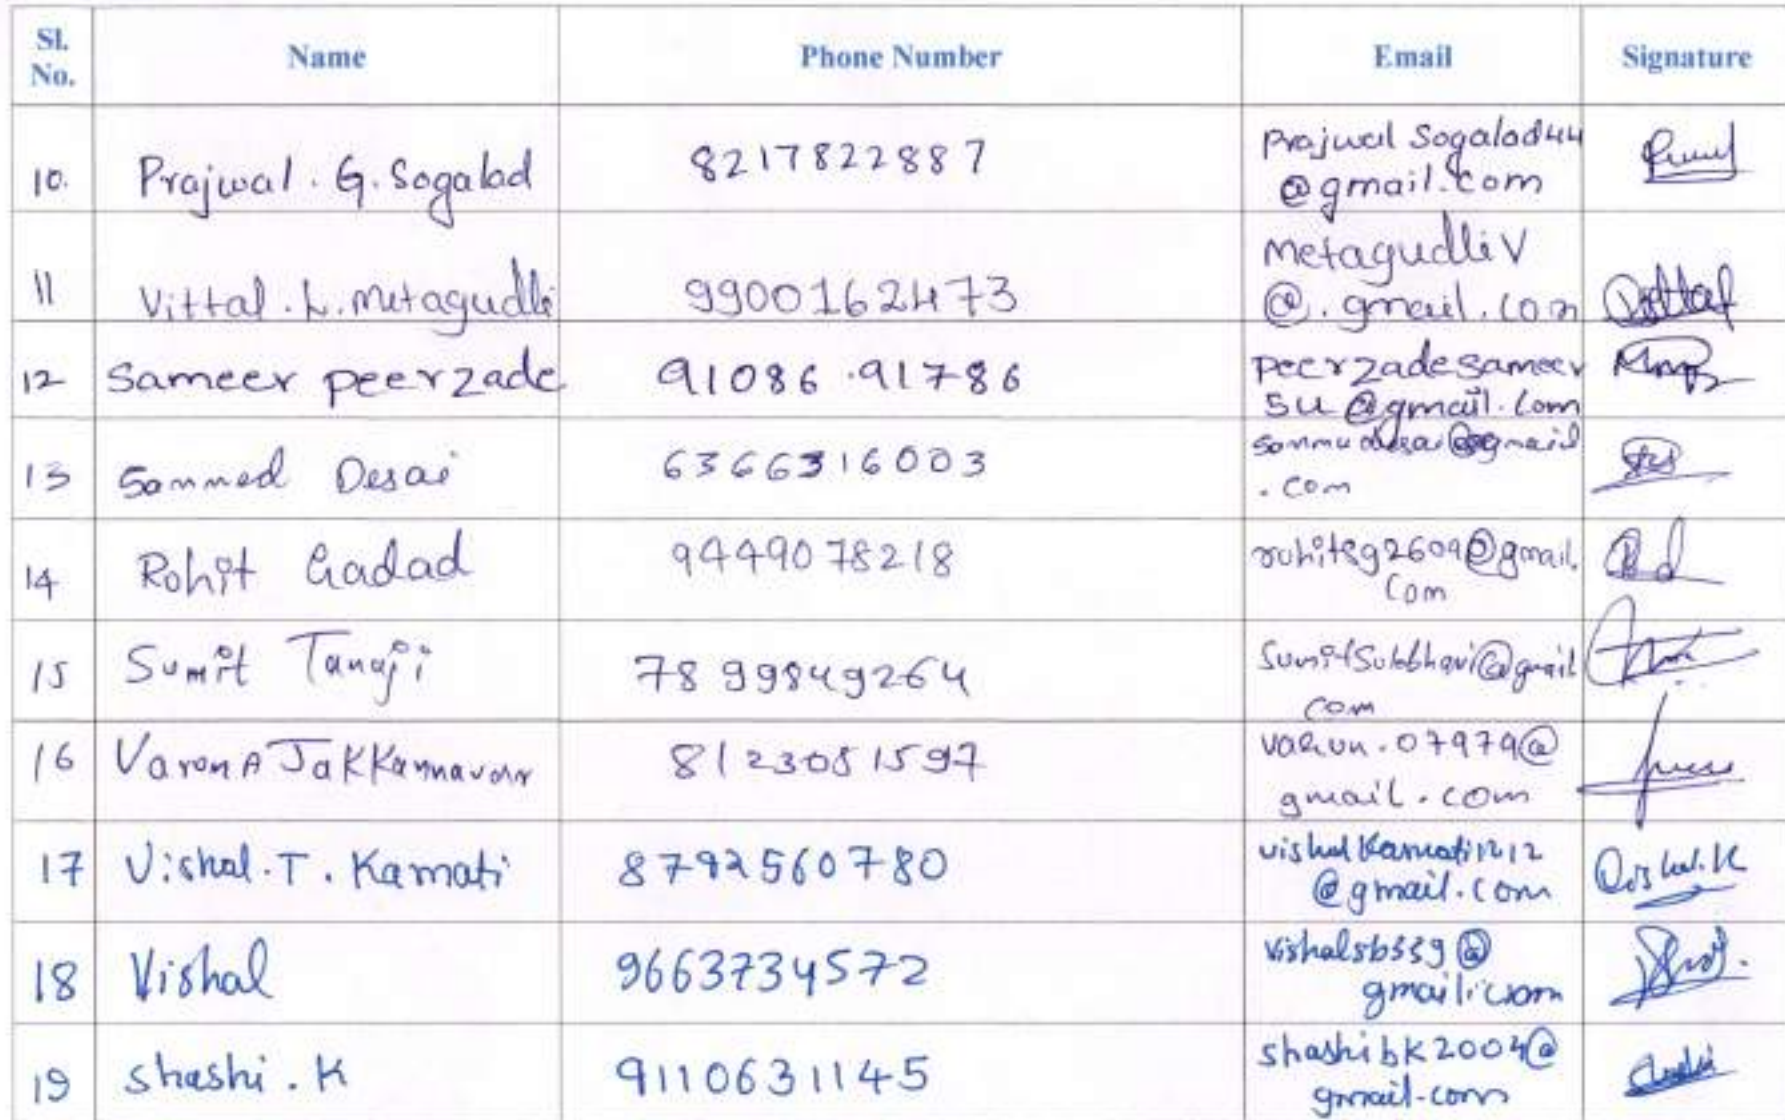 Sl. No. Name Phone Number Email Signature
10. Prajwal. G. Sogalad 8217822887 Prajwal Sogalad44
@gmail.com
11 Vittal. L. Metagudli 9900162473 MetagudliV
@.gmail.com
12 Sameer peerzade 91086.91786 peerzadesameer
54@gmail.com
13 Sanmed Desai 6366316003 sanmudesai@gmail
.com
14 Rohit Gadad 9449078218 rohitsg2609@gmail.
com
15 Sumit Tanaji 7899849264 SumitSulebhavi@gmail
com
16 Varon A Jakkannavar 8123081597 varun.07979@
gmail.com
17 Vishal.T. Kamati 8792560780 vishalkamati1212
@gmail.com Vishal.K
18 Vishal 9663734572 vishalsb339@
gmail.com
19 shashi.K 9110631145 shashibk2004@
gmail.com